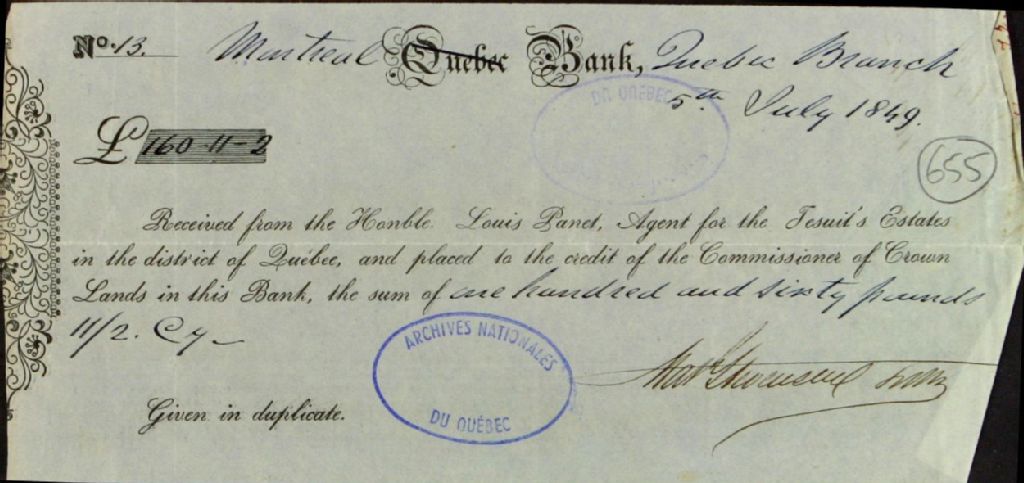 No. 13. Montreal Quebec Bank, Quebec Branch
DU QUÉBEC
5th July 1849.
£ 160-11-2
655
Received from the Honble. Louis Panet, Agent for the Jesuit's Estates
in the district of Québec, and placed to the credit of the Commissioner of Crown
Lands in this Bank, the sum of one hundred and sixty pounds
11/2. Cy
ARCHIVES NATIONALES
DU QUÉBEC
Given in duplicate.